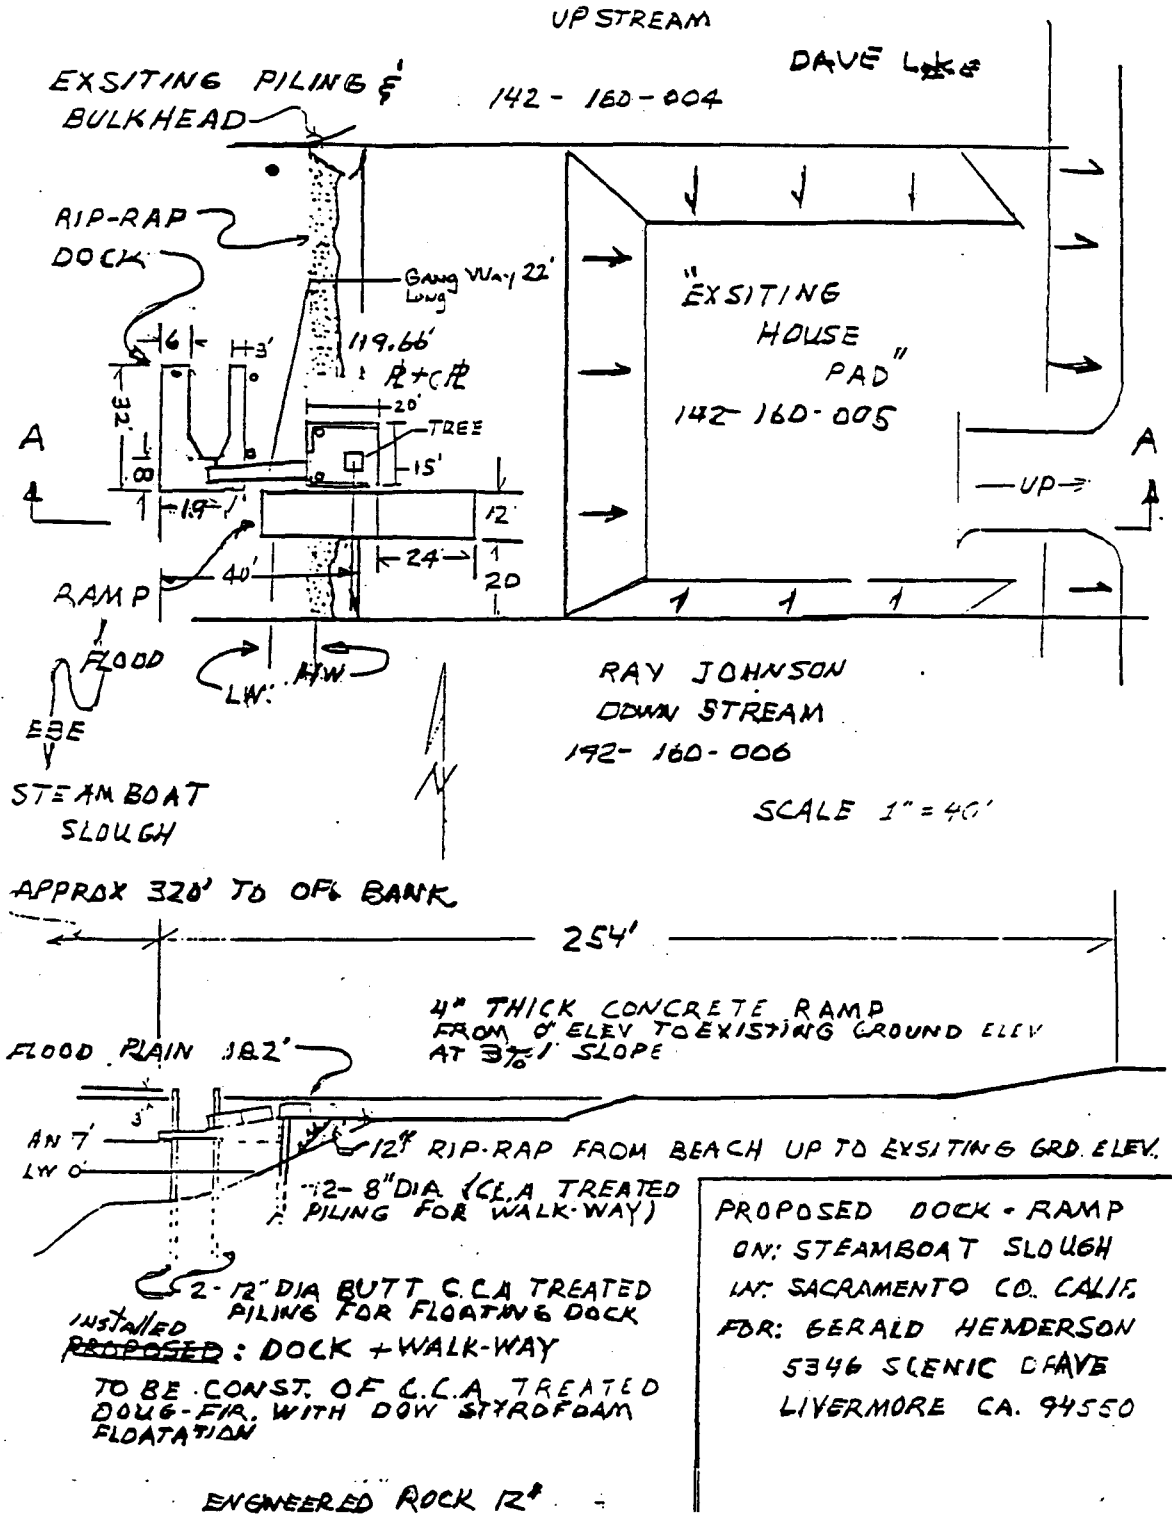 UP STREAM
DAVE
EXSITING PILING &
BULKHEAD
142-160-004
RIP-RAP
DOCK
GANG WAY 22'
LONG
"EXSITING
HOUSE
PAD"
142-160-005
6
3'
119.66'
20'
TREE
32'
8
15'
A
A
UP
19'
12
24
40'
20
RAMP
FLOOD
EBE
LW.
RAY JOHNSON
DOWN STREAM
142-160-006
N
STEAMBOAT
SLOUGH
SCALE 1" = 40'
APPROX 320' TO BANK
254'
4" THICK CONCRETE RAMP
FROM 0' ELEV TO EXISTING GROUND ELEV
AT SLOPE
FLOOD PLAIN 18.2'
3'
7'
LW 0'
RIP-RAP FROM BEACH UP TO EXSITING GRD. ELEV.
2-8" DIA TREATED
PILING FOR WALK-WAY)
2-12" DIA BUTT C.C.A TREATED
PILING FOR FLOATING DOCK
INSTALLED
PROPOSED: DOCK + WALK-WAY
TO BE CONST. OF C.C.A TREATED
DOUG-FIR. WITH DOW STYROFOAM
FLOATATION
ENGINEERED ROCK
PROPOSED DOCK - RAMP
ON: STEAMBOAT SLOUGH
IN: SACRAMENTO CO. CALIF.
FOR: GERALD HENDERSON
5346 SCENIC
LIVERMORE CA. 94550